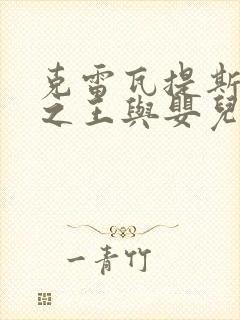 克雷瓦提斯
之王與嬰兒
一青竹